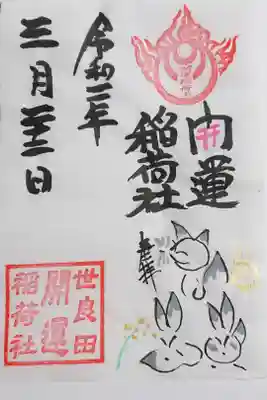 開運
稲荷社
奉拝
令和二年
三月二十二日
世良田
開運
稲荷社